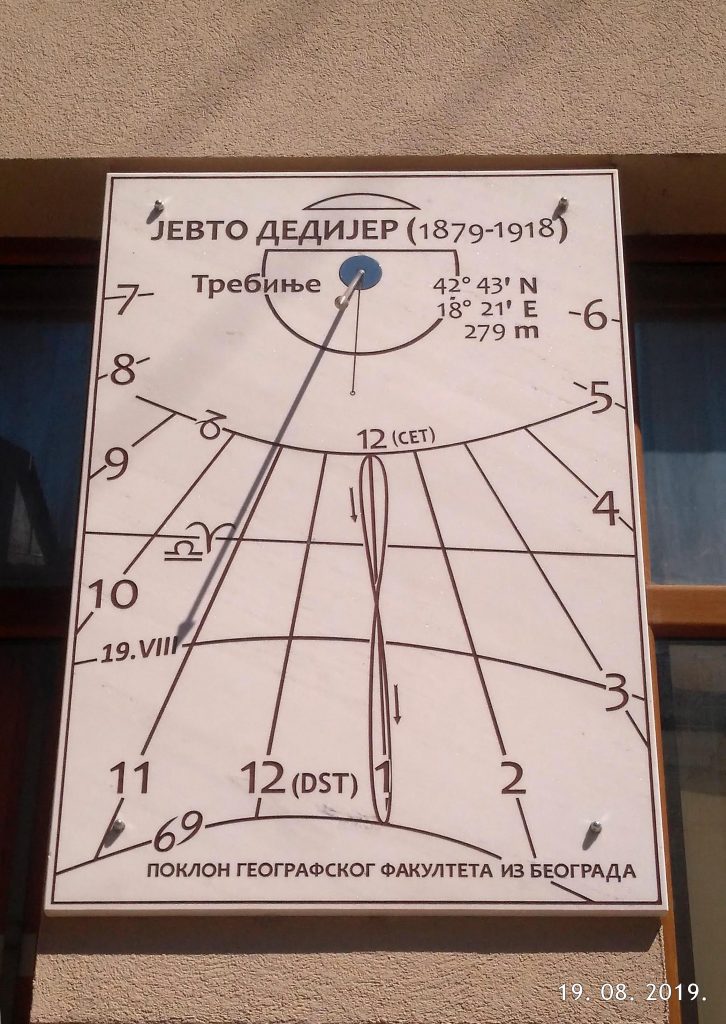 ЈЕВТО ДЕДИЈЕР (1879-1918)
Требиње
42° 43' N
18° 21' E
279 m
7
6
8
5
12 (CET)
9
4
♎♈
10
19.VIII
3
11
12 (DST)
1
2
♋
ПОКЛОН ГЕОГРАФСКОГ ФАКУЛТЕТА ИЗ БЕОГРАДА
19. 08. 2019.